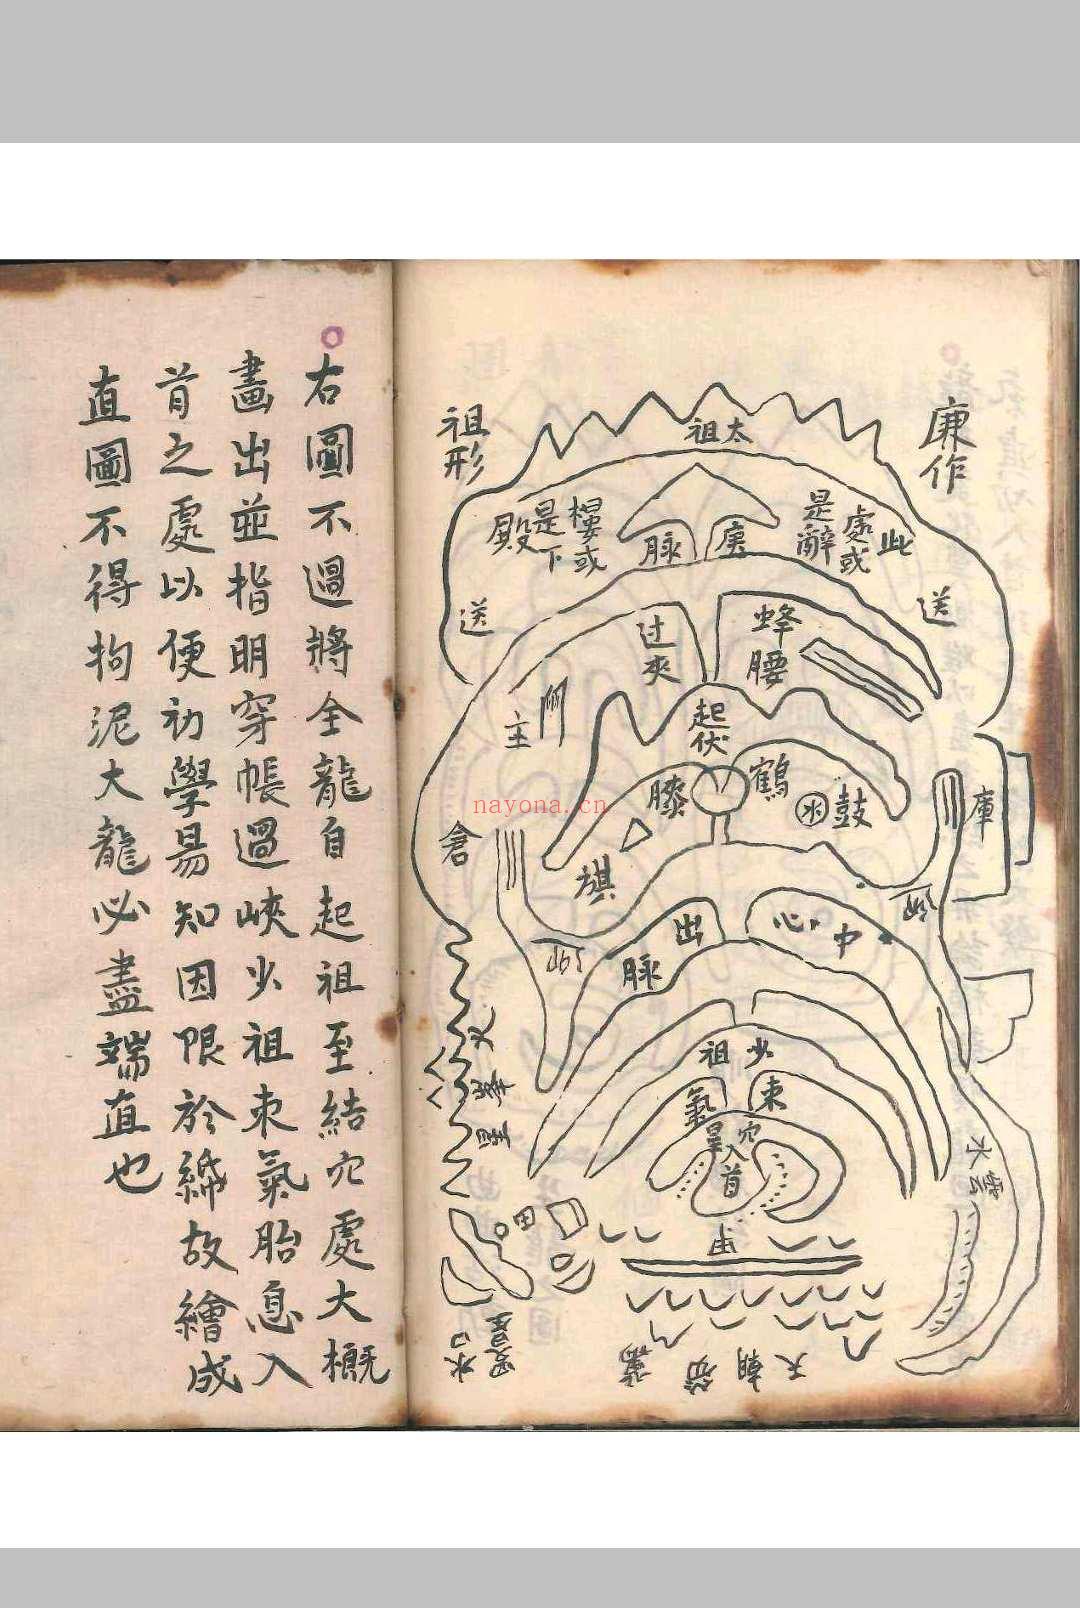 廉作
祖形
太祖
此處或是辭
樓或是下殿
庚脉
送
送
蜂腰
过夾
起伏
主
鶴膝
鼓
旗
倉
庫
中心
出脉
少祖
束氣
穴入首
水口
田
天朝
nayona.cn
右圖不過將全龍自起祖至結穴處大概
畫出並指明穿帳過峽少祖束氣胎息入
首之處以便初學易知因限於綈故繪成
直圖不得拘泥大龍必盡端直也